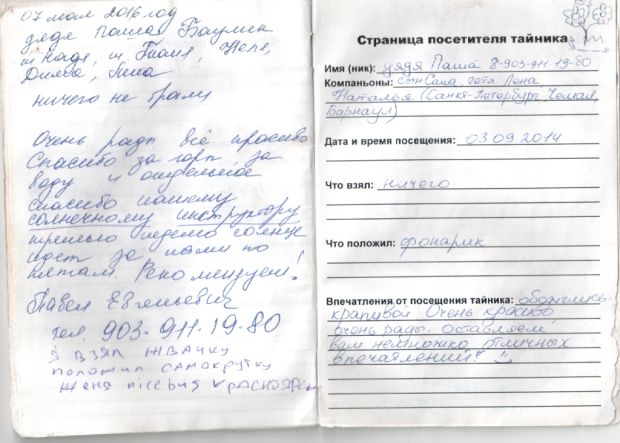 07 мая 2016 год
дядя Паша Барлык
т Надя, т Галя, Неля,
Дилева, Гена
ничего не брали
Очень рады всё красиво
Спасибо за горы, за
воду и отдельное
спасибо нашему
солнечному инструктору
третью неделю солнце
идет за нами по
пятам. Рекомендуем!
Павел Евгеньевич
тел. 903-911-19-80
Я ВЗЯЛ ЖВАЧКУ
ПОЛОЖИЛ САМОКРУТКУ
ЖЕНЯ КРАСНОЯРСК
Страница посетителя тайника
Имя (ник): дядя Паша 8-903-911-19-80
Компаньоны: сон Саша, сетя Лена
Наталья (Санкт-Петербург, Чемал,
Барнаул)
Дата и время посещения: 03.09.2014
Что взял: ничего
Что положил: фонарик
Впечатления от посещения тайника: обожглись
крапивой Очень красиво
очень рады. Оставляем
вам немножко отличных
впечатлений!